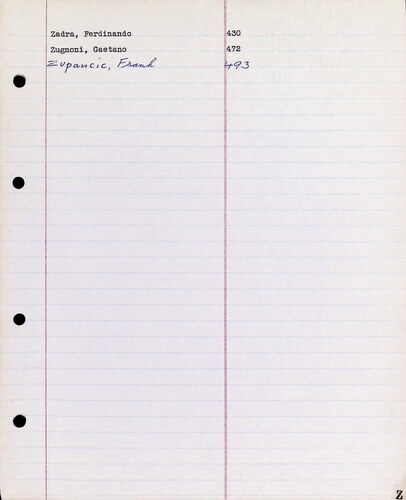 Zadra, Ferdinando 430
Zugnoni, Gaetano 472
Zupancic, Frank 493
Z